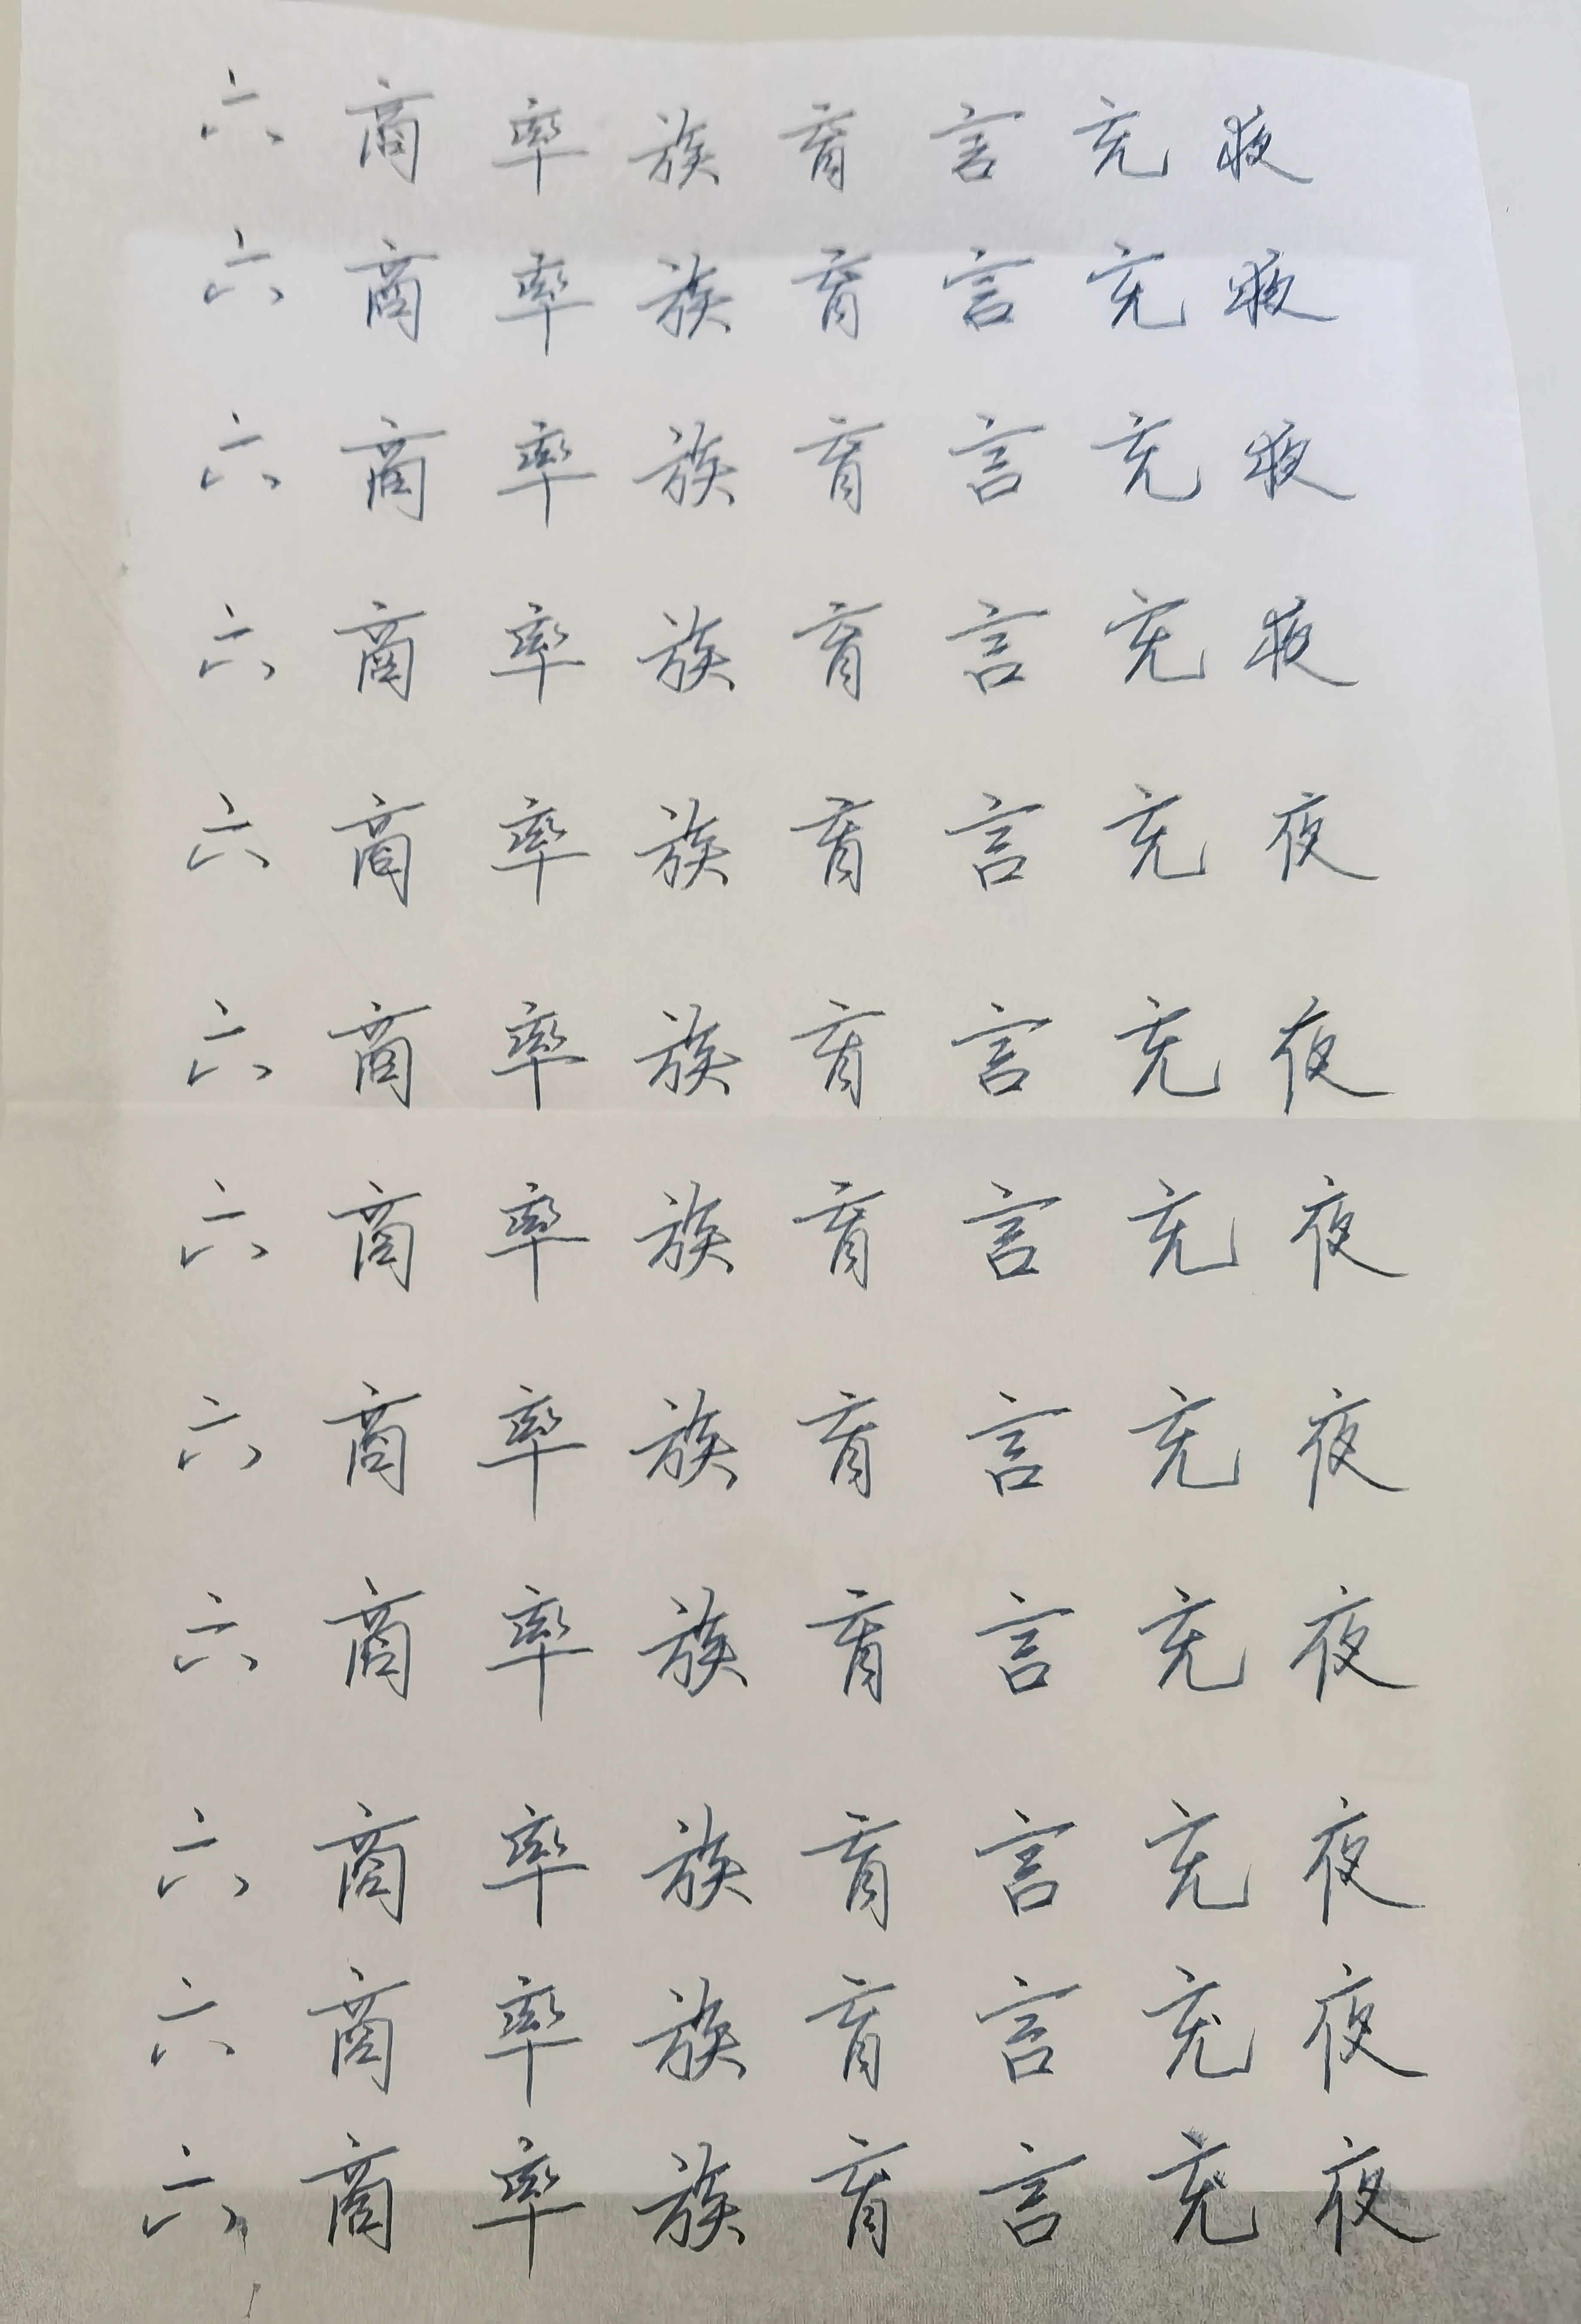 六商率族育言充夜
六商率族育言充夜
六商率族育言充夜
六商率族育言充夜
六商率族育言充夜
六商率族育言充夜
六商率族育言充夜
六商率族育言充夜
六商率族育言充夜
六商率族育言充夜
六商率族育言充夜
六商率族育言充夜